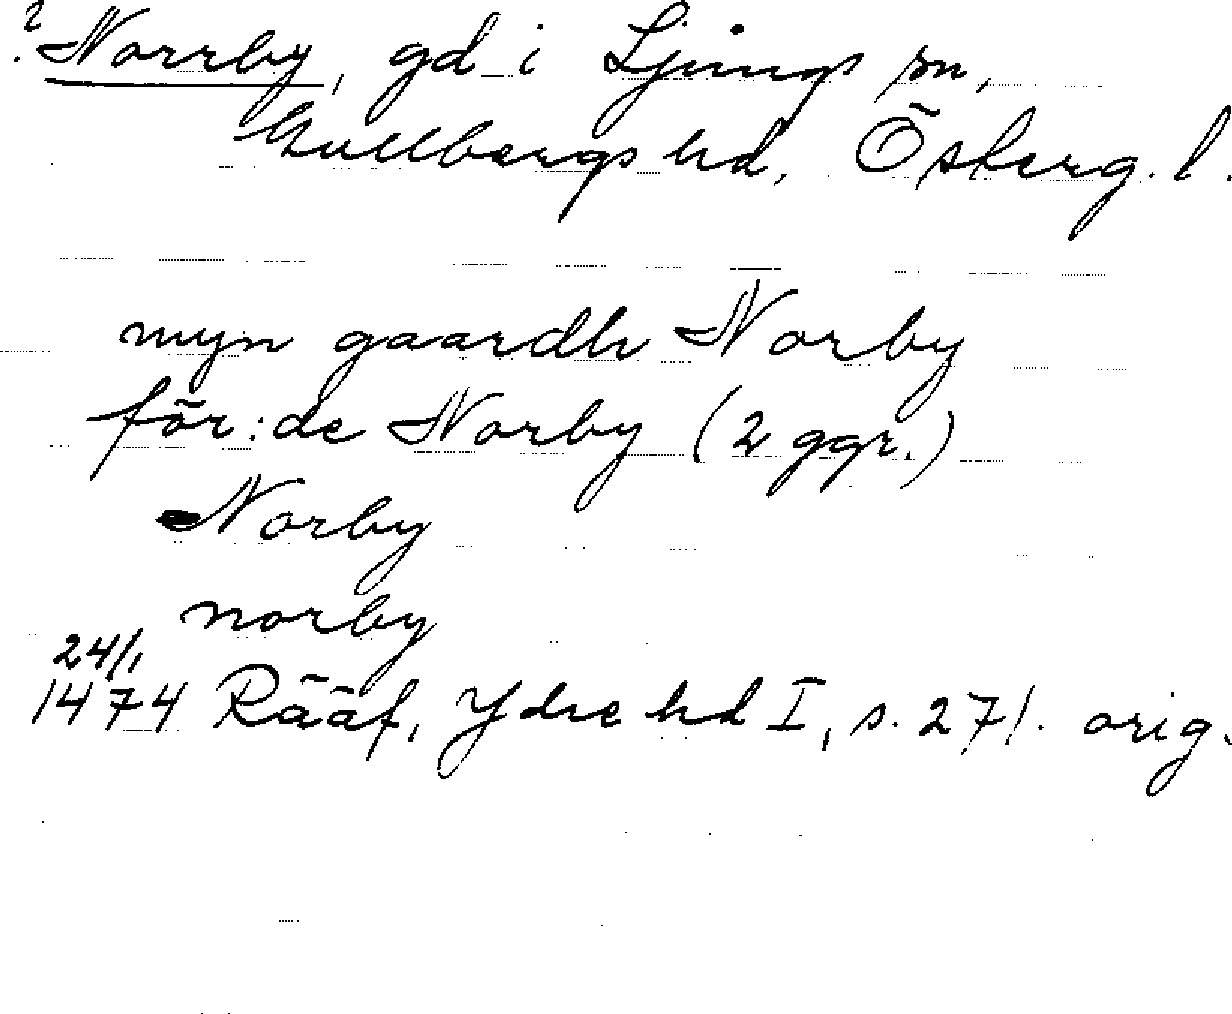 ? Norrby, gd i Ljungs sn,
Gullbergs hd, Österg. l.
myn gaardh Norby
för: de Norby (2 ggr.)
Norby
norby
24/1
1474 Rääf, Ydre hd I, s. 271. orig.